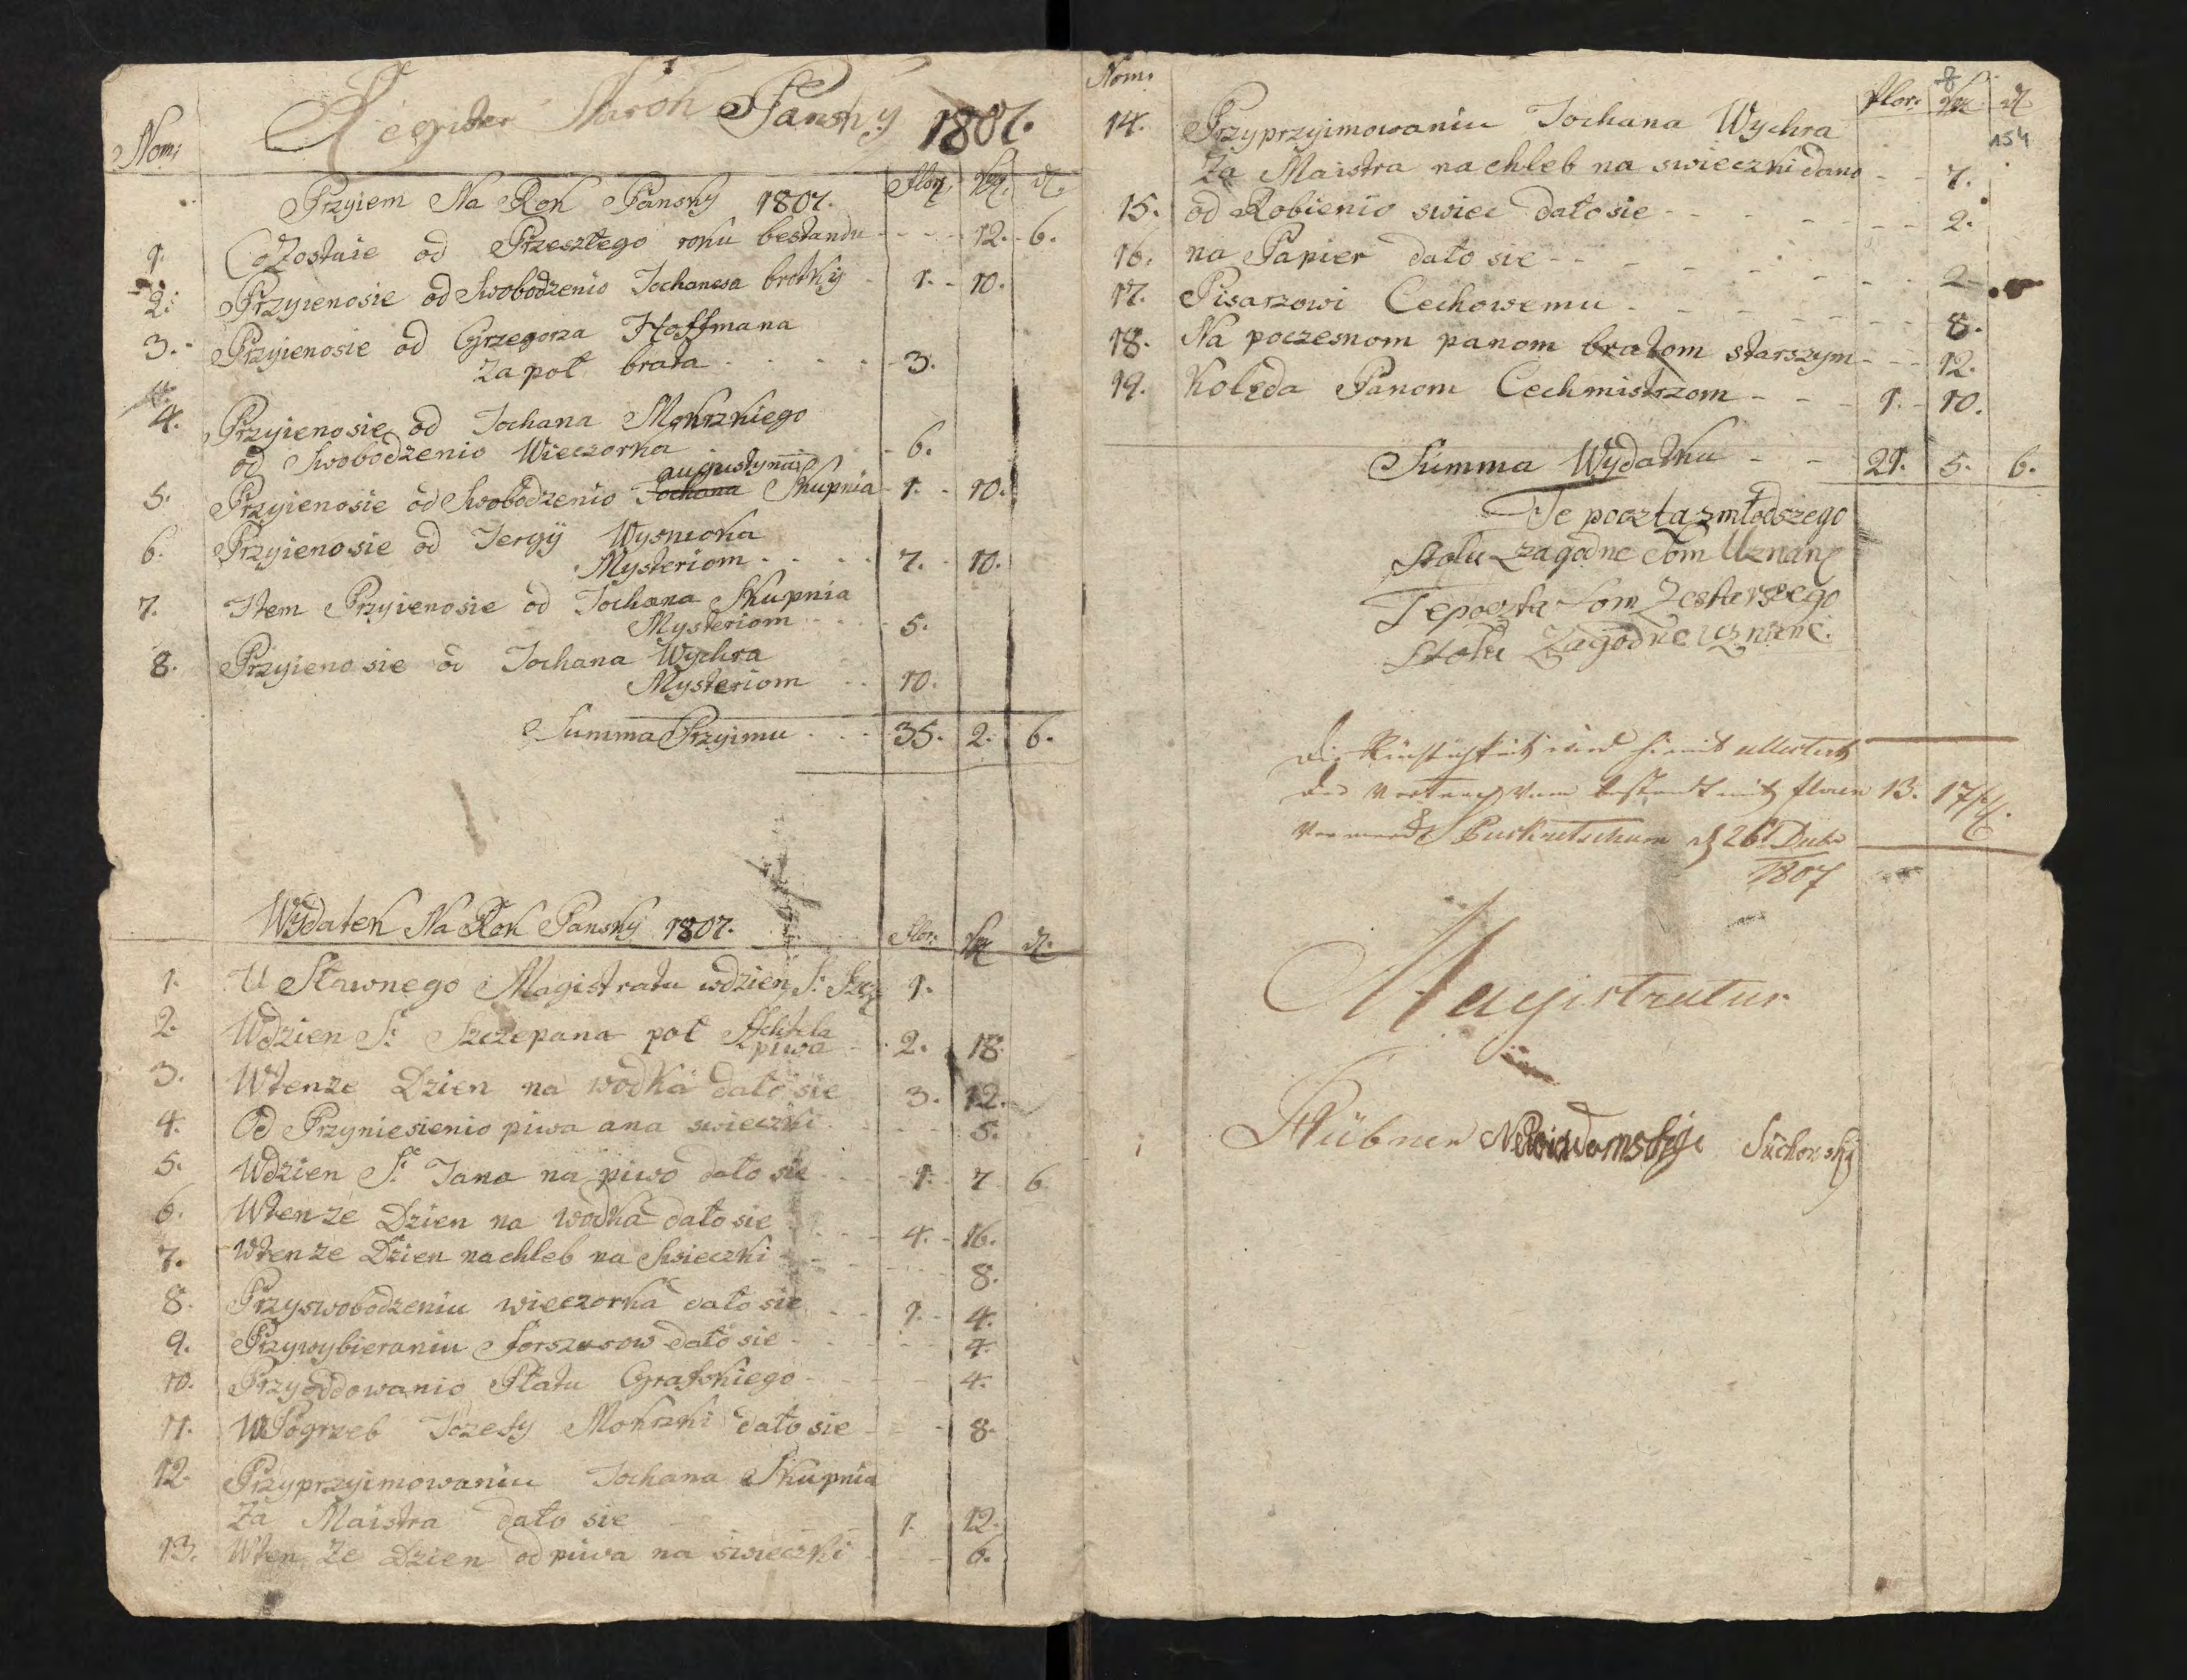 Register Na rok Pansky 1807.
Nom:
Przyiem Na Rok Pansky 1807. Flor: Kr: d:
1. Co Zostaie od Przeszłego roku bestandu - - - 12. - 6.
2. Przyienosie od Swobodzenio Jochanesa brotky - 1. - 10.
3. Przyienosie od Grzegorza Hoffmana
Za poł brata - - - 3.
4. Przyienosie od Jochana Mokrzkiego
od Swobodzenio Wieczorka - 6.
augustyna
5. Przyienosie od Swobodzenio Jochana Skupnia - 1. - 10.
6. Przyienosie od Jergij Wysnioka
Mysteriom - - - 7. - 10.
7. Item Przyienosie od Jochana Skupnia
Mysteriom - - - 5.
8. Przyienosie od Jochana Wychra
Mysteriom - - 10.
Summa Przyimu - - - 35. 2. 6.
Wydatek Na Rok Pansky 1807. Flor: d:
1. U Sławnego Magistratu wdzien S: Szcz 1.
2. Wdzien S: Szczepana poł Achtela
piwa - 2. 18.
3. Wtenze Dzien na wodka dało sie 3. 12.
4. Od Przyniesienio piwa ana swieczki - - - 5.
5. Wdzien S: Jana na piwo dało sie - - 1. - 7 6.
6. Wtenze Dzien na wodka dało sie - - - 4. - 16.
7. Wtenze Dzien nachleb na Swieczki - - - 8.
8. Przyswobodzeniu wieczorka dało sie - - 1. - 4.
9. Przywybieraniu Forszusow dało sie - - - 4.
10. Przyoddowanio Płatu Grafskiego - - - 4.
11. WPogrzeb Jozefy Mokrzki dało sie - - - 8.
12. Przyprzyimowaniu Jochana Skupnia
Za Maistra dało sie 1. 12.
13. Wten Ze Dzien od piwa na swieczki - - - 6.
Nom: Flor: d
154
14. Przyprzyimowaniu Jochana Wychra
Za Maistra nachleb na swieczki dano - - 7.
15. od Robienio swiec dało sie - - - - - 2.
16. na Papier dało sie - - - - - 2
17. Pisarzowi Cechowemu - - - - - 8.
18. Na poczesnom panom bratom starszym - - - 12.
19. Kolęda Panom Cechmistrzom - - - 1. - 10.
Summa Wydatku - - 21. 5. 6.
Te pocztą zmłodszego
stołu zagodne som Uznane
Te poczta som Zestarszego
stołu Zagodne uznane.
Die Richtigkeit wird hiermit attestiert
13. 17
26t Decbr
1807
Magistratus
Hübner Suchorsky